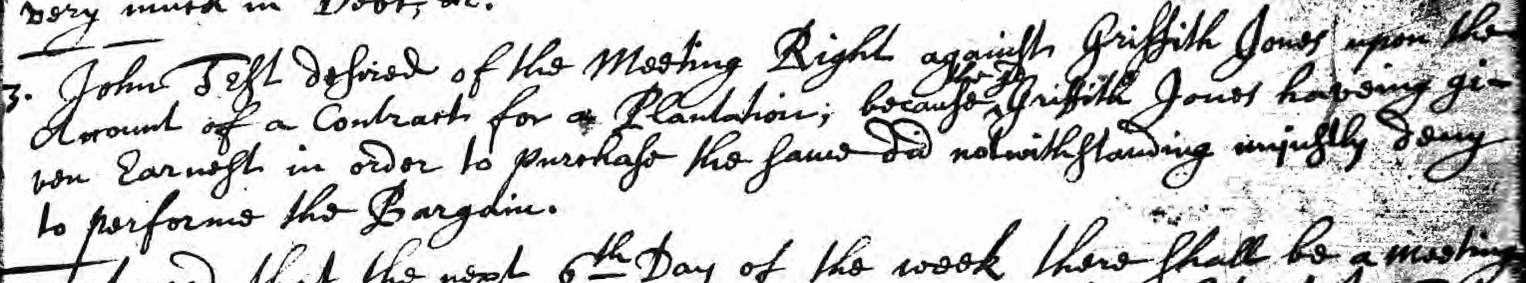 very much in Debt, &c.
3. John Test desired of the Meeting Right against Griffith Jones upon the
Account of a Contract for a Plantation; because the sd Griffith Jones haveing gi-
ven Earnest in order to purchase the same did notwithstanding unjustly deny
to performe the Bargain.
that the next 6th Day of the week there shall be a meeting